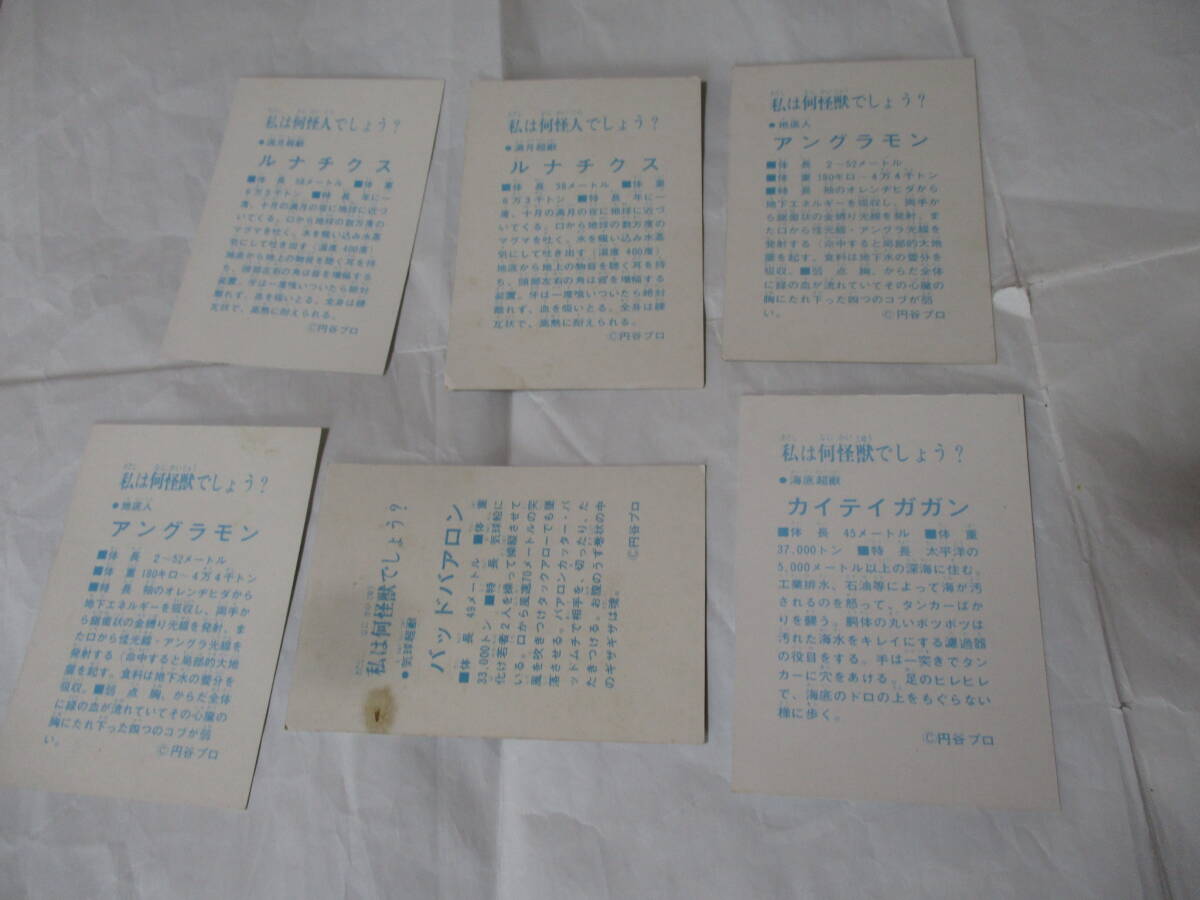 私は何怪人でしょう?
●満月超獣
ルナチクス
■体 長 58メートル ■体 重
6万3千トン ■特 長 年に一
度、十月の満月の夜に地球に近づ
いてくる。口から地球の数万度の
マグマを吐く。水を吸い込み水蒸
気にして吐き出す(温度 400度)
地底から地上の物音を聴く耳を持
ち、頭部左右の角は音を増幅する
装置。牙は一度喰いついたら絶対
離れず、血を吸いとる。全身は練
瓦状で、高熱に耐えられる。
©円谷プロ
私は何怪人でしょう?
●満月超獣
ルナチクス
■体 長 58メートル ■体 重
6万3千トン ■特 長 年に一
度、十月の満月の夜に地球に近づ
いてくる。口から地球の数万度の
マグマを吐く。水を吸い込み水蒸
気にして吐き出す(温度 400度)
地底から地上の物音を聴く耳を持
ち、頭部左右の角は音を増幅する
装置。牙は一度喰いついたら絶対
離れず、血を吸いとる。全身は練
瓦状で、高熱に耐えられる。
©円谷プロ
私は何怪獣でしょう?
●地底人
アングラモン
■体 長 2~52メートル
■体 重 180キロ~4万4千トン
■特 長 袖のオレンヂヒダから
地下エネルギーを吸収し、両手か
ら鎖歯状の金縛り光線を発射、ま
た口から怪光線・アングラ光線を
発射する(命中すると局部的大地
震を起す。食料は地下水の養分を
吸収。■弱 点 胸、からだ全体
に緑の血が流れていてその心臓の
胸にたれ下った四つのコブが弱
い。
©円谷プロ
私は何怪獣でしょう?
●地底人
アングラモン
■体 長 2~52メートル
■体 重 180キロ~4万4千トン
■特 長 袖のオレンヂヒダから
地下エネルギーを吸収し、両手か
ら鎖歯状の金縛り光線を発射、ま
た口から怪光線・アングラ光線を
発射する(命中すると局部的大地
震を起す。食料は地下水の養分を
吸収。■弱 点 胸、からだ全体
に緑の血が流れていてその心臓の
胸にたれ下った四つのコブが弱
い。
©円谷プロ
私は何怪獣でしょう?
●気球超獣
バッドバアロン
■体 長 49メートル ■体 重
33,000トン ■特 長 気球船に
化け若者2人を操って操縦させて
いる。口から風速70メートルの突
風を吹きつけタックアローでも墜
落させる。バアロンカッター・バ
ッドムチで相手を、切ったり、た
たきつける。お腹のうず巻状の中
のギザギザは確。
©円谷プロ
私は何怪獣でしょう?
●海底超獣
カイテイガガン
■体 長 45メートル ■体 重
37,000トン ■特 長 太平洋の
5,000メートル以上の深海に住む。
工業排水、石油等によって海が汚
されるのを怒って、タンカーばか
りを闘う。胴体の丸いボツボツは
汚れた海水をキレイにする濾過器
の役目をする。手は一突きでタン
カーに穴をあける。足のヒレヒレ
で、海底のドロの上をもぐらない
様に歩く。
©円谷プロ